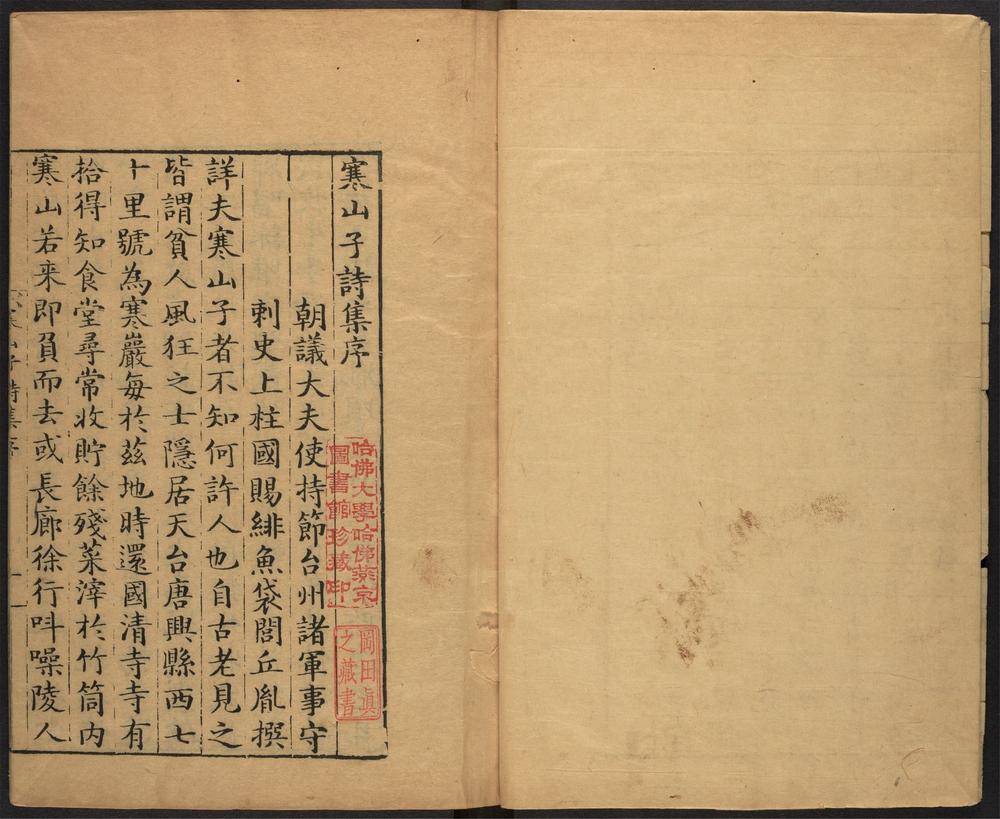 寒山子詩集序
朝議大夫使持節台州諸軍事守
刺史上柱國賜緋魚袋閭丘胤撰
詳夫寒山子者不知何許人也自古老見之
皆謂貧人風狂之士隱居天台唐興縣西七
十里號為寒巖每於茲地時還國清寺寺有
拾得知食堂尋常收貯餘殘菜滓於竹筒内
寒山若来即負而去或長廊徐行呌噪陵人
寒山子詩集序
一
哈佛大學哈佛燕京
圖書館珍藏印
岡田眞
之藏書